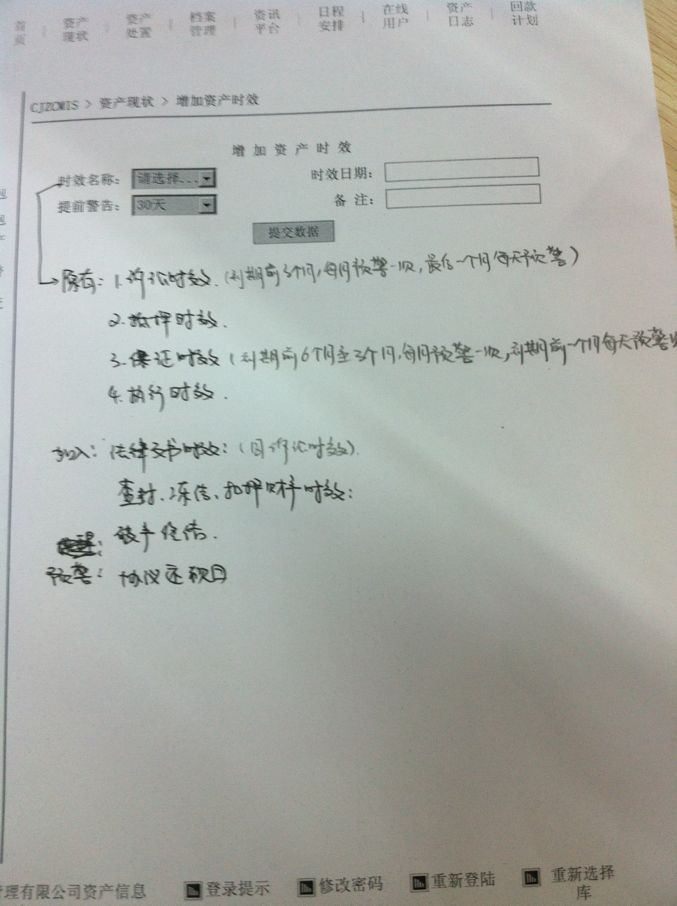 首页 | 资产现状 | 资产处置 | 档案管理 | 资讯平台 | 日程安排 | 在线用户 | 资产日志 | 回款计划
CJZCMIS > 资产现状 > 增加资产时效
增加资产时效
时效名称: 请选择... 时效日期:
提前警告: 30天 备注:
提交数据
原有: 1.诉讼时效.(到期前3个月,每月预警一次,最后一个月每天预警)
2.抵押时效.
3.保证时效(到期前6个月至3个月,每月预警一次,到期前一个月每天预警
4.执行时效.
加入: 法律文书时效:(同诉讼时效).
查封、冻结、扣押财产时效:
破产
预警: 协议还款日
管理有限公司资产信息 登录提示 修改密码 重新登陆 重新选择库